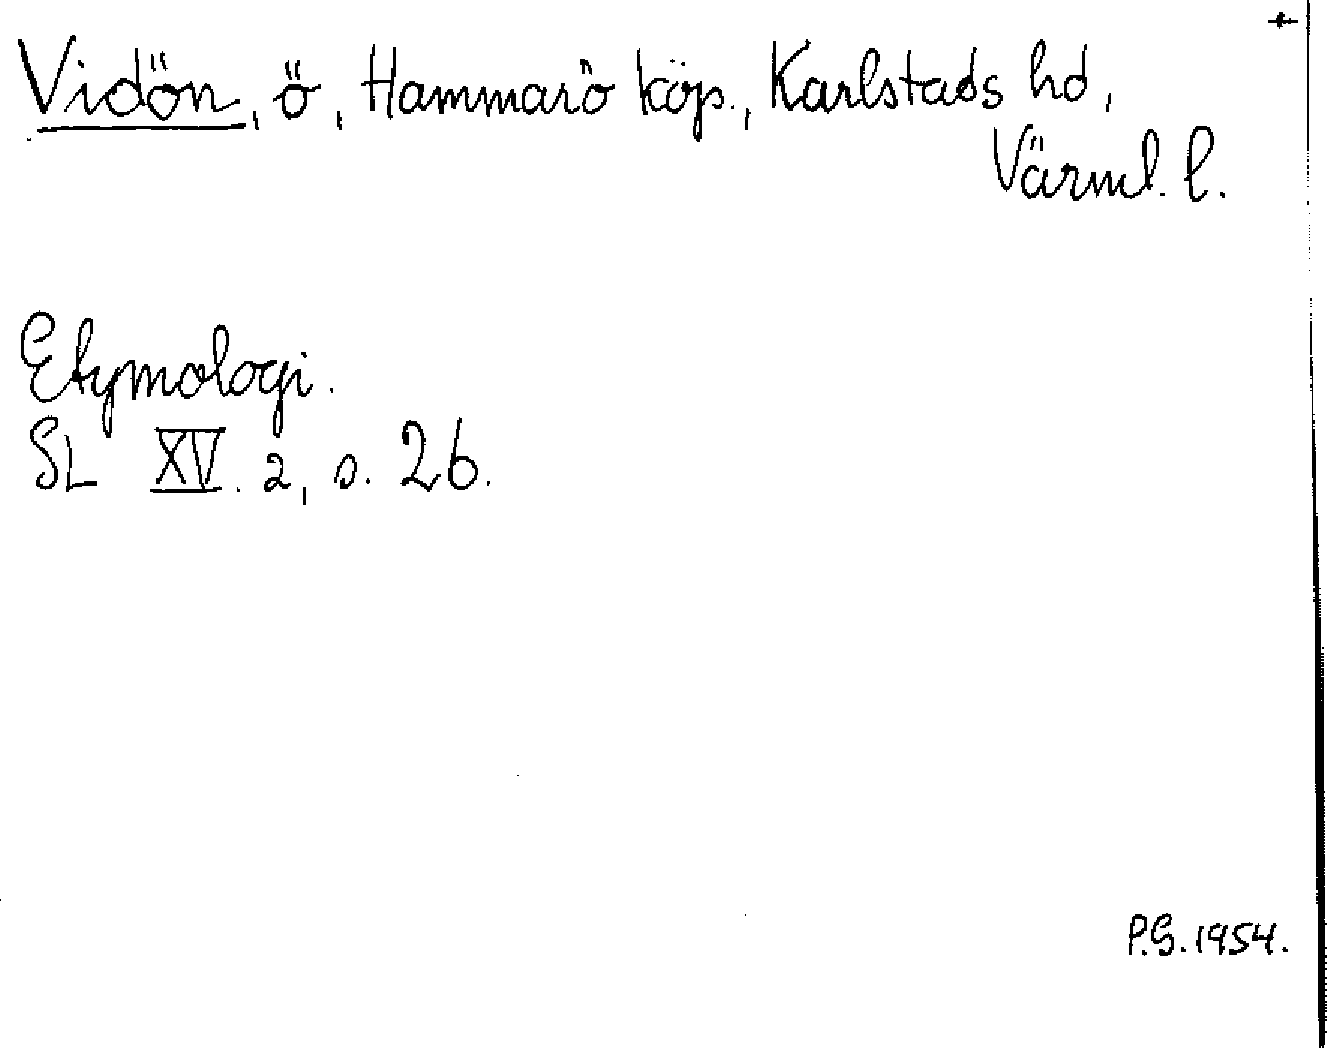 Vidön, ö, Hammarö köp., Karlstads hd,
Värml. l.
Etymologi.
SL XV. 2, s. 26.
P.G. 1954.